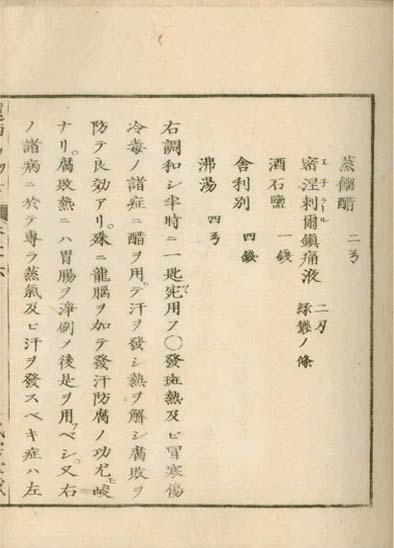 蒸餾醋 二ヲ
密涅刺爾鎮痛液 二刄 ノ條
酒石鹽 一錢
舎利別 四錢
沸湯 四ヲ
右調和シ半時ニ一匙宛用フ〇發斑熱及ビ冒寒傷
冷毒ノ諸症ニ醋ヲ用テ汗ヲ發シ熱ヲ解シ腐敗ヲ
防テ良効アリ。殊ニ龍腦ヲ加テ發汗防腐ノ功尤モ峻
ナリ。腐敗熱ニハ胃腸ヲ淨刷ノ後是ヲ用フベシ。又右
ノ諸病ニ於テ專ラ蒸氣及ビ汗ヲ發スベキ症ハ左